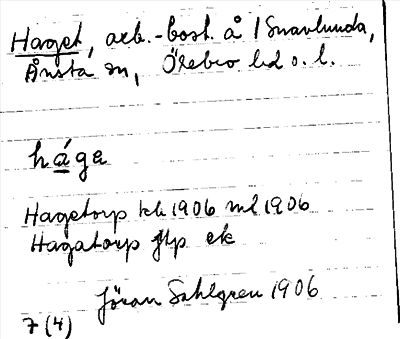 Haget, arb.-bost. å 1 Snavlunda,
Ånsta sn, Örebro hd o. l.
håga
Hagetorp kb 1906 ml 1906
Hagatorp ftp ek
Jöran Sahlgren 1906
7 (4)